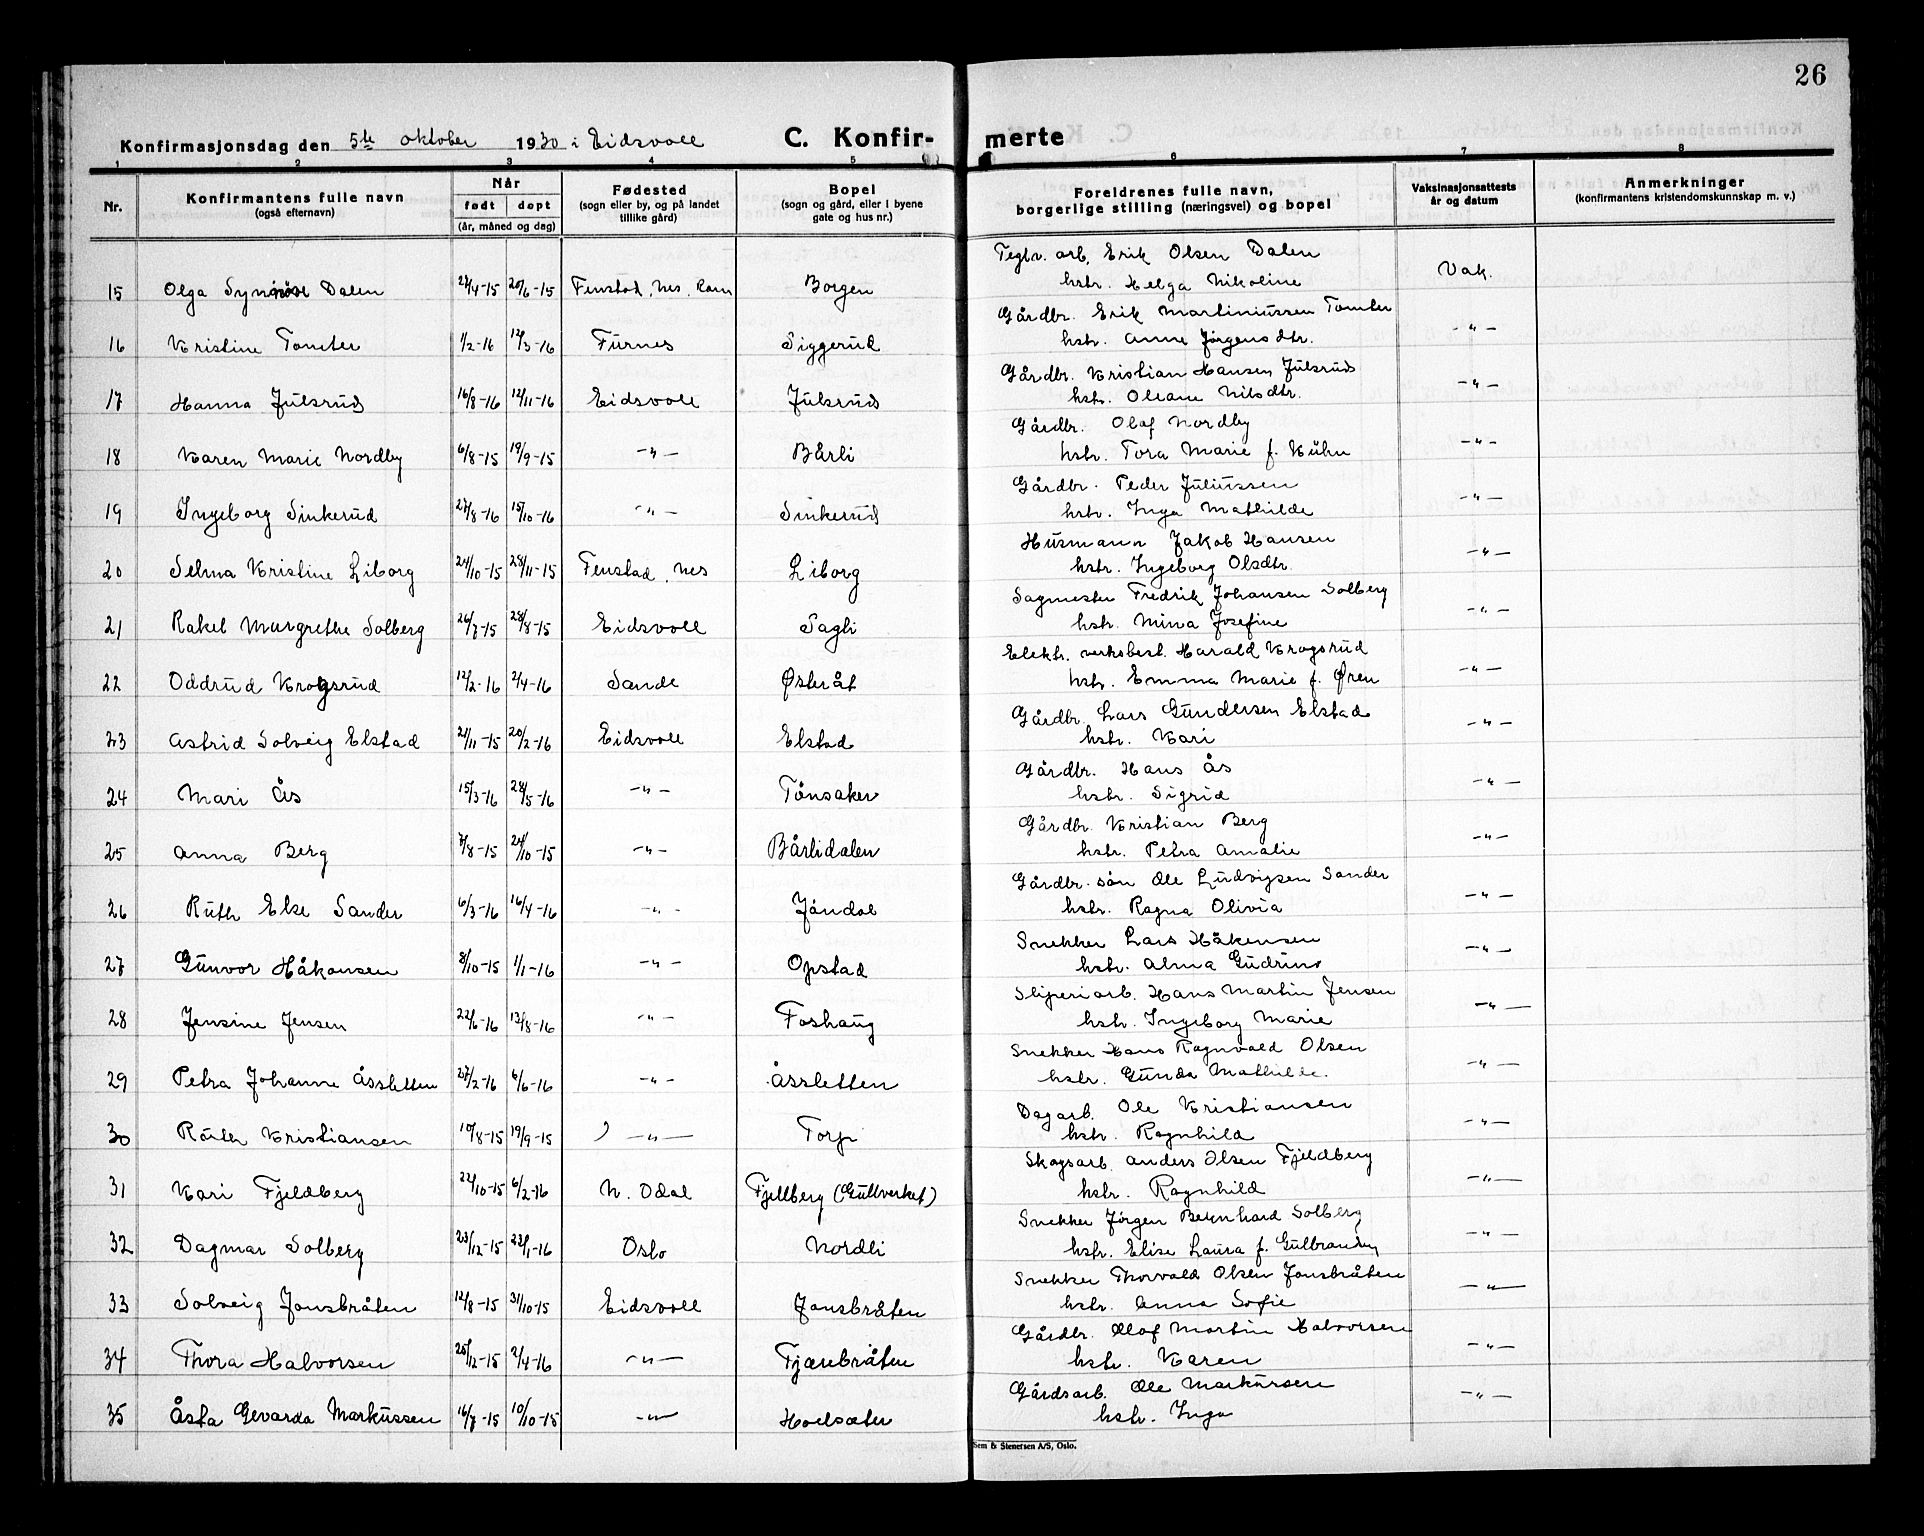 26
Konfirmasjonsdag den 5te oktober 1930 i Eidsvoll C. Konfir- merte
1 2 3 4 5 6 7 8
Nr. Konfirmantens fulle navn (også efternavn) Når født døpt (år, måned og dag) Fødested (sogn eller by, og på landet tillike gård) Bopel (sogn og gård, eller i byene gate og hus nr.) Foreldrenes fulle navn, borgerlige stilling (næringsvei) og bopel Vaksinasjonsattests år og datum Anmerkninger (konfirmantens kristendomskunnskap m. v.)
Teglv. arb. Erik Olsen Dalen
15 Olga Synnøve Dalen 28/4-15 20/6-15 Fenstad, Nes, Rom Borgen hstr. Helga Nikoline Vak.
Gårdbr. Erik Martiniussen Tomter
16 Kristine Tomter 1/2-16 12/3-16 Furnes Siggerud hstr. Anne Jørgensdtr. -"-
Gårdbr. Kristian Hansen Julsrud
17 Hanna Julsrud 16/8-16 12/11-16 Eidsvoll Julsrud hstr. Oleane Nilsdtr. -"-
Gårdbr. Olaf Nordby
18 Karen Marie Nordby 6/8-15 19/9-15 -"- Bårli hstr. Tora Marie f. Kühn -"-
Gårdbr. Peder Juliussen
19 Ingeborg Sinkerud 27/8-16 15/10-16 -"- Sinkerud hstr. Inga Mathilde -"-
Husmann Jakob Hansen
20 Selma Kristine Liborg 24/10-15 28/11-15 Fenstad, Nes Liborg hstr. Ingeborg Olsdtr. -"-
Sagmester Fredrik Johansen Solberg
21 Rakel Margrethe Solberg 26/7-15 28/8-15 Eidsvoll Sagli hstr. Mina Josefine -"-
Elektr. verksbest. Harald Krogsrud
22 Oddrud Krogsrud 12/2-16 2/4-16 Sande Østeråt hstr. Emma Marie f. Øren -"-
Gårdbr. Lars Gundersen Elstad
23 Astrid Solveig Elstad 21/11-15 20/2-16 Eidsvoll Elstad hstr. Kari -"-
Gårdbr. Hans Ås
24 Mari Ås 15/3-16 28/5-16 -"- Tønsaker hstr. Sigrid -"-
Gårdbr. Kristian Berg
25 Anna Berg 7/8-15 24/10-15 -"- Bårlidalen hstr. Petra Amalie -"-
Gårdbr. søn Ole Ludvigsen Sander
26 Ruth Else Sander 6/3-16 16/4-16 -"- Jøndal hstr. Ragna Olivia -"-
Snekker Lars Håkensen
27 Gunvor Håkonsen 8/10-15 1/1-16 -"- Opstad hstr. Alma Gudrun -"-
Sliperiarb. Hans Martin Jensen
28 Jensine Jensen 22/6-16 13/8-16 -"- Foshaug hstr. Ingeborg Marie -"-
Snekker Hans Ragnvald Olsen
29 Petra Johanne Åssletten 27/2-16 6/6-16 -"- Åssletten hstr. Gunda Mathilde. -"-
Dagarb. Ole Kristiansen
30 Ruth Kristiansen 10/8-15 19/9-15 -"- Torp hstr. Ragnhild -"-
Skogsarb. Anders Olsen Fjeldberg
31 Kari Fjeldberg 22/10-15 6/2-16 N. Odal Fjellberg (Gullverket) hstr. Ragnhild -"-
Snekker Jørgen Bernhard Solberg
32 Dagmar Solberg 23/12-15 23/1-16 Oslo Nordli hstr. Elise Laura f. Gulbrandsen -"-
Snekker Thorvald Olsen Jonsbråten
33 Solveig Jonsbråten 12/8-15 31/10-15 Eidsvoll Jonsbråten hstr. Anna Sofie -"-
Gårdbr. Olaf Martin Halvorsen
34 Thora Halvorsen 25/12-15 2/4-16 -"- Fjærebråten hstr. Karen -"-
Gårdsarb. Ole Markussen
35 Åsta Gevarda Markussen 16/7-15 10/10-15 -"- Hoelsæter hstr. Inga -"-
Sem & Stenersen A/S, Oslo.